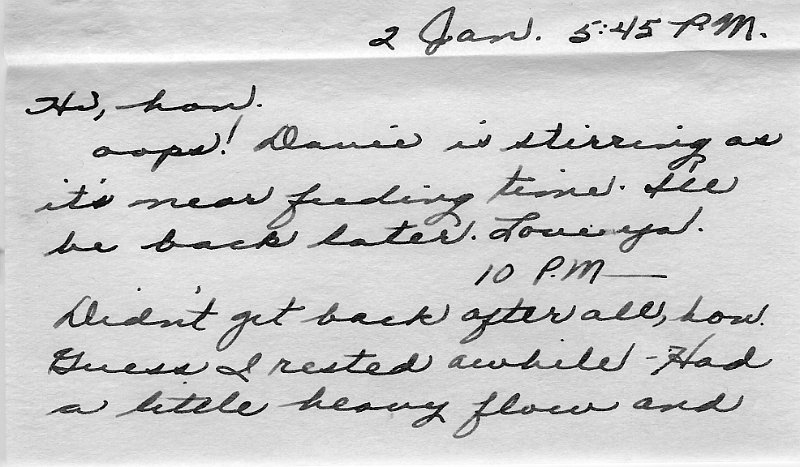 2 Jan. 5:45 P.M.
Hi, hon.
oops! Davie is stirring as
it's near feeding time. I'll
be back later. Love ya.
10 P.M—
Didn't get back after all, hon.
Guess I rested awhile - Had
a little heavy flow and